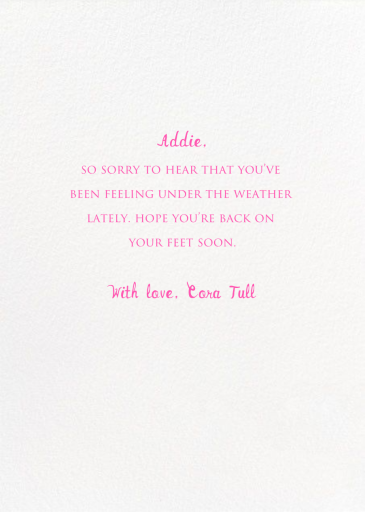 Addie,
SO SORRY TO HEAR THAT YOU'VE
BEEN FEELING UNDER THE WEATHER
LATELY. HOPE YOU'RE BACK ON
YOUR FEET SOON.
With love, Cora Tull